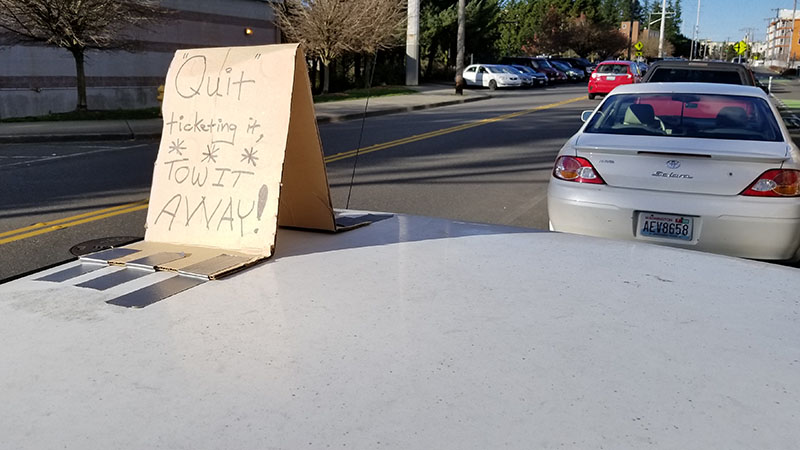 "Quit"
ticketing it,
* * *
TOW IT
AWAY!
Solara
WASHINGTON
AEV8658